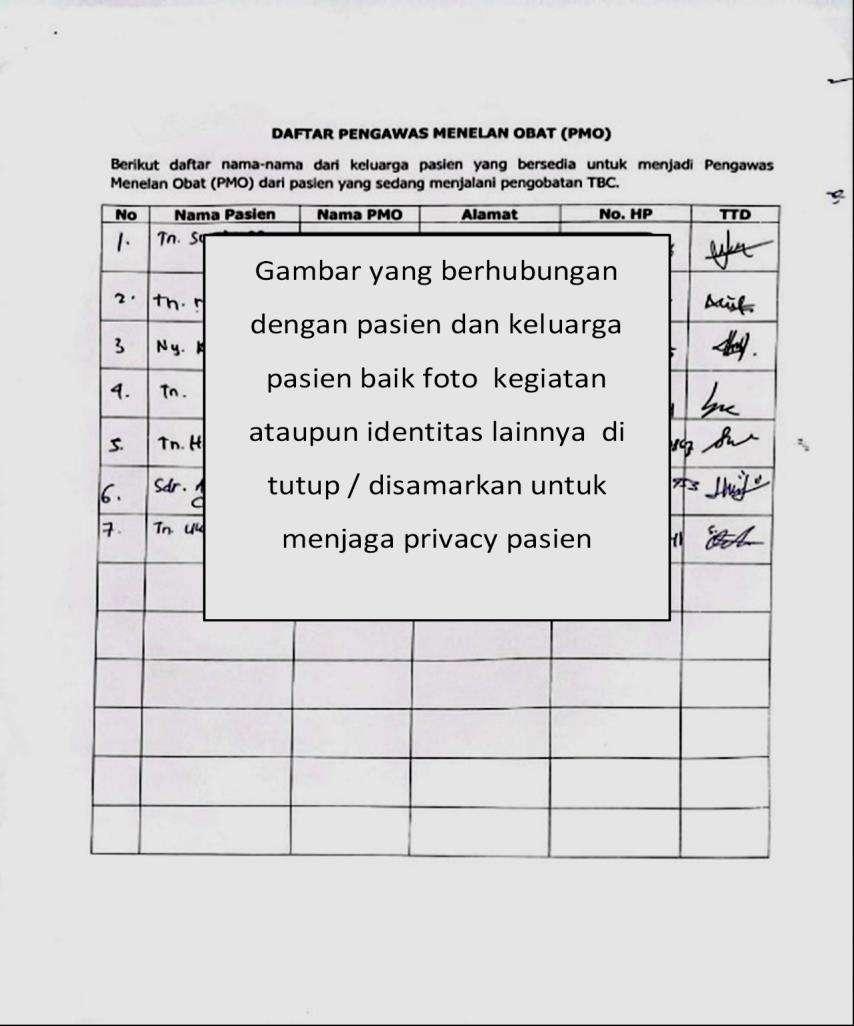 DAFTAR PENGAWAS MENELAN OBAT (PMO)
Berikut daftar nama-nama dari keluarga pasien yang bersedia untuk menjadi Pengawas
Menelan Obat (PMO) dari pasien yang sedang menjalani pengobatan TBC.
No Nama Pasien Nama PMO Alamat No. HP TTD
1. Tn.
2. Tn.
3 Ny.
4. Tn.
5. Tn. H
6. Sdr. A
7. Tn
Gambar yang berhubungan
dengan pasien dan keluarga
pasien baik foto kegiatan
ataupun identitas lainnya di
tutup / disamarkan untuk
menjaga privacy pasien